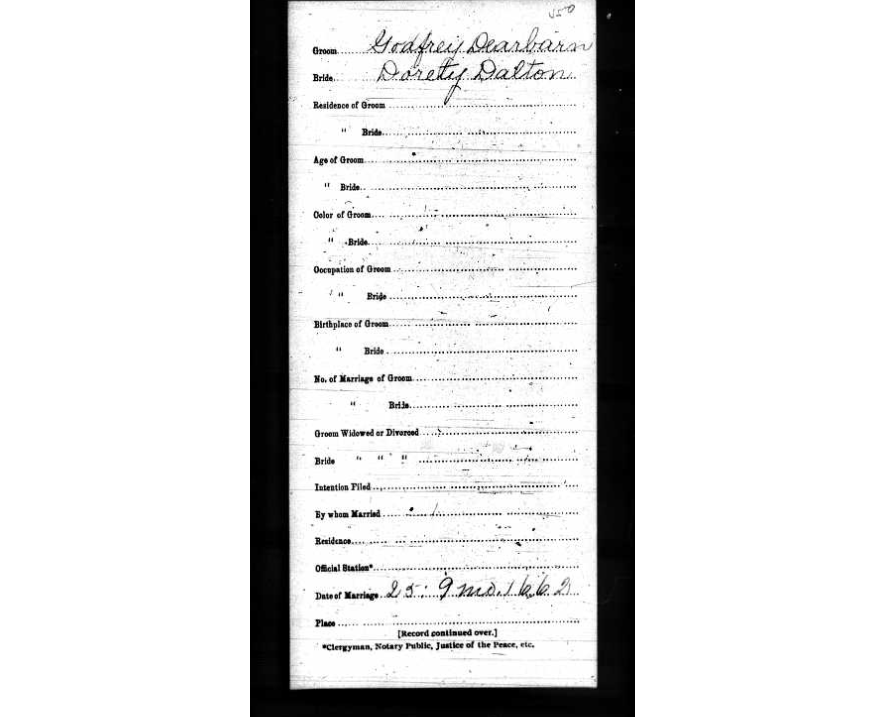 450
Groom Godfrey Dearbarn
Bride Dorety Dalton
Residence of Groom
" Bride
Age of Groom
" Bride
Color of Groom
" Bride
Occupation of Groom
" Bride
Birthplace of Groom
" Bride
No. of Marriage of Groom
" Bride
Groom Widowed or Divorced
Bride " " "
Intention Filed
By whom Married
Residence
Official Station*
Date of Marriage 25. 9 mo. 1662
Place
[Record continued over.]
*Clergyman, Notary Public, Justice of the Peace, etc.